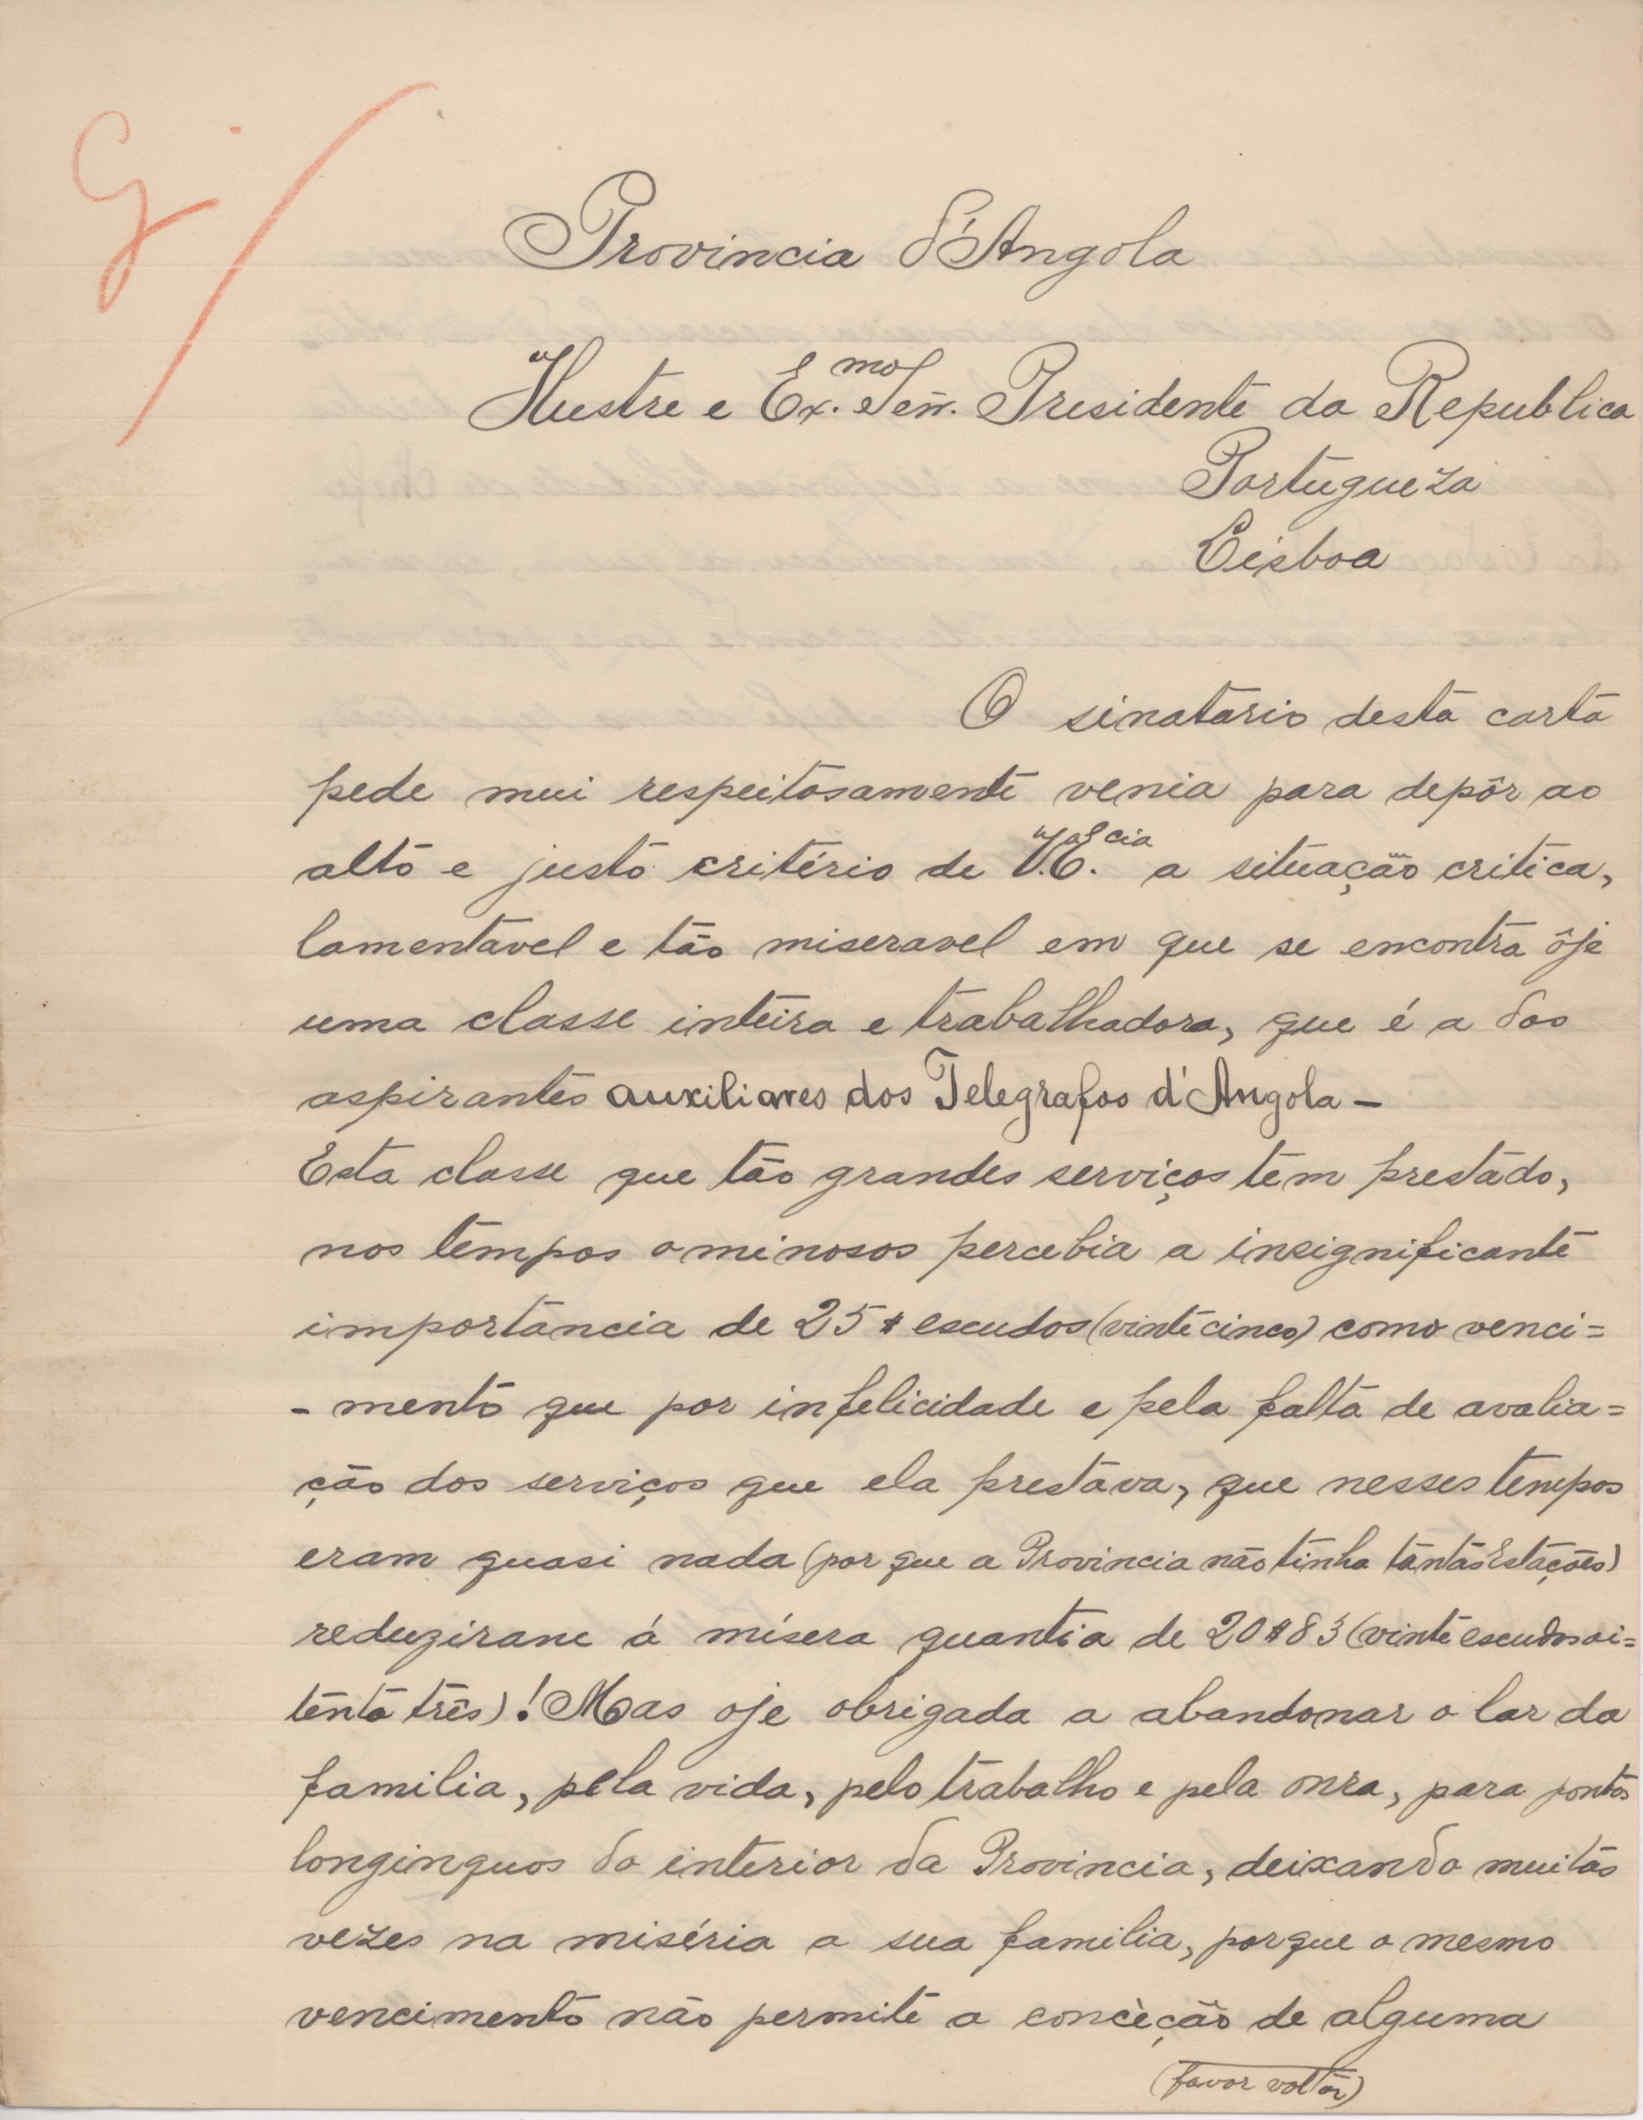 G
Provincia d'Angola
Ilustre e Ex.mo Señr. Presidente da Republica
Portugueza
Lisboa
O sinatario desta carta
pede mui respeitosamente venia para depôr ao
alto e justo critério de V.Ex.cia a situação critica,
lamentavel e tão miseravel em que se encontra ôje
uma classe inteira e trabalhadora, que é a dos
aspirantes auxiliares dos Telegrafos d'Angola -
Esta classe que tão grandes serviços tem prestado,
nos tempos ominosos percebia a insignificante
importância de 25$ escudos (vinte cinco) como venci=
- mento que por infelicidade e pela falta de avalia=
ção dos serviços que ela prestava, que nesses tempos
eram quasi nada (por que a Provincia não tinha tantas Estações)
reduzirane á mísera quantia de 20$83 (vinte escudos oi=
tenta três)! Mas oje obrigada a abandonar o lar da
familia, pela vida, pelo trabalho e pela onra, para pontos
longinquos do interior da Provincia, deixando muitas
vezes na miséria a sua familia, porque o mesmo
vencimento não permite a concèção de alguma
(favor voltar)